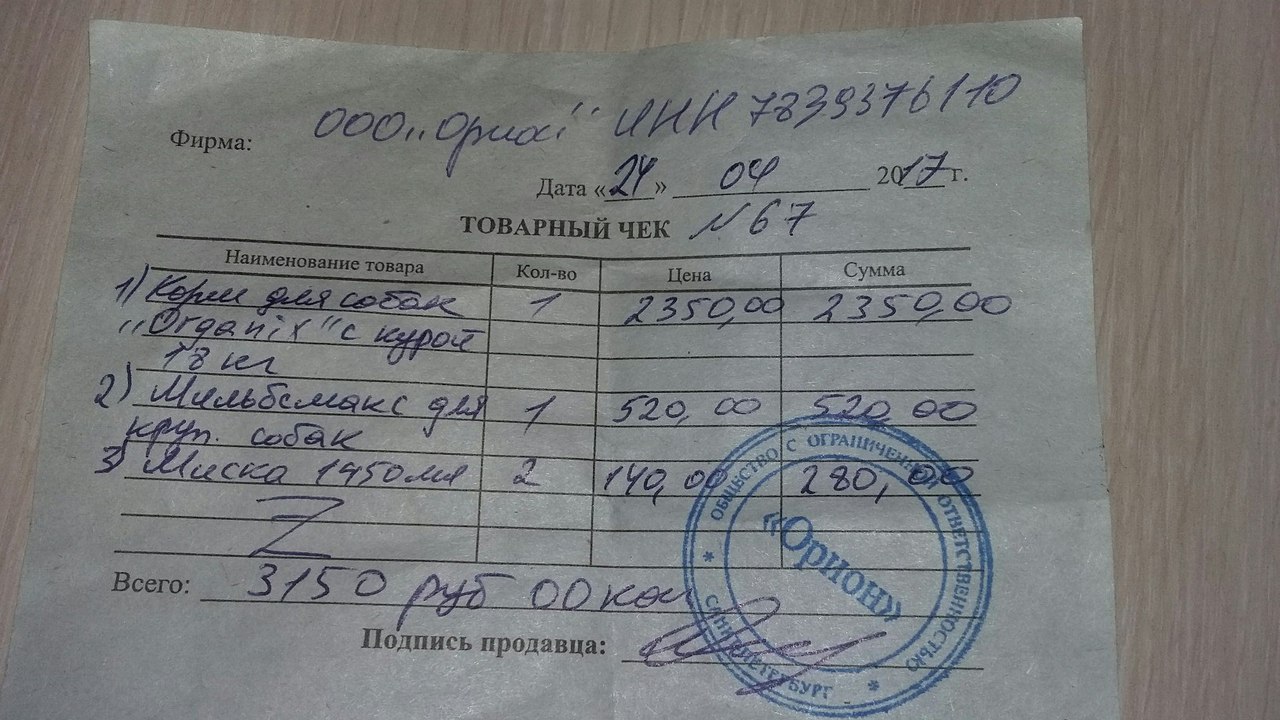 Фирма: ООО "Орион" ИНН 7839376110
Дата «24» 04 2017 г.
ТОВАРНЫЙ ЧЕК N 67
Наименование товара Кол-во Цена Сумма
1) Корм для собак 1 2350,00 2350,00
"Organix" с курой
18 кг
2) Мильбемакс для 1 520,00 520,00
круп. собак
3) Миска 1950мл 2 140,00 280,00
Z
Всего: 3150 руб 00 коп
Подпись продавца:
ОБЩЕСТВО С ОГРАНИЧЕННОЙ ОТВЕТСТВЕННОСТЬЮ
«Орион»
САНКТ-ПЕТЕРБУРГ